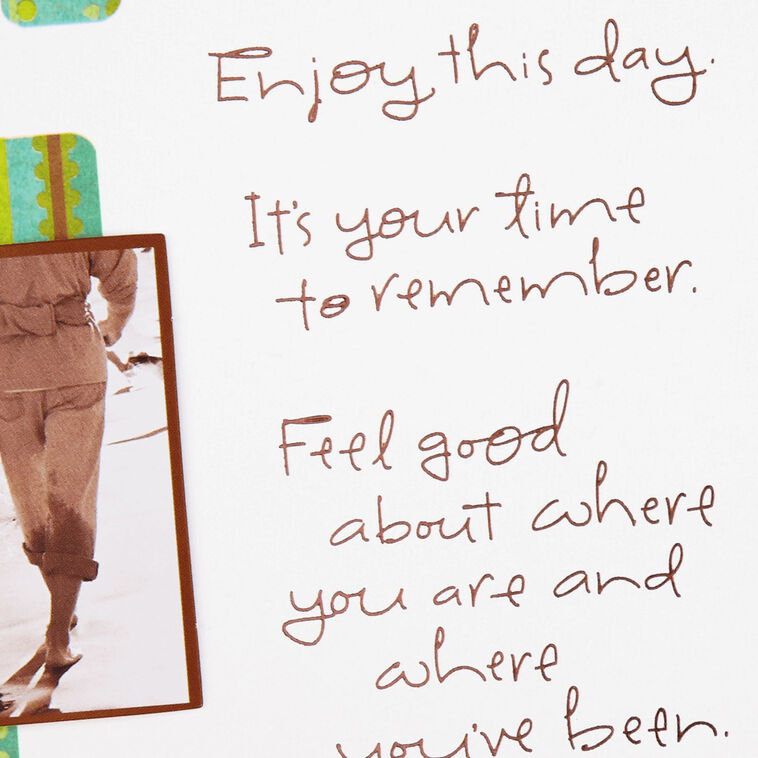 Enjoy this day.
It's your time
to remember.
Feel good
about where
you are and
where
you've been.